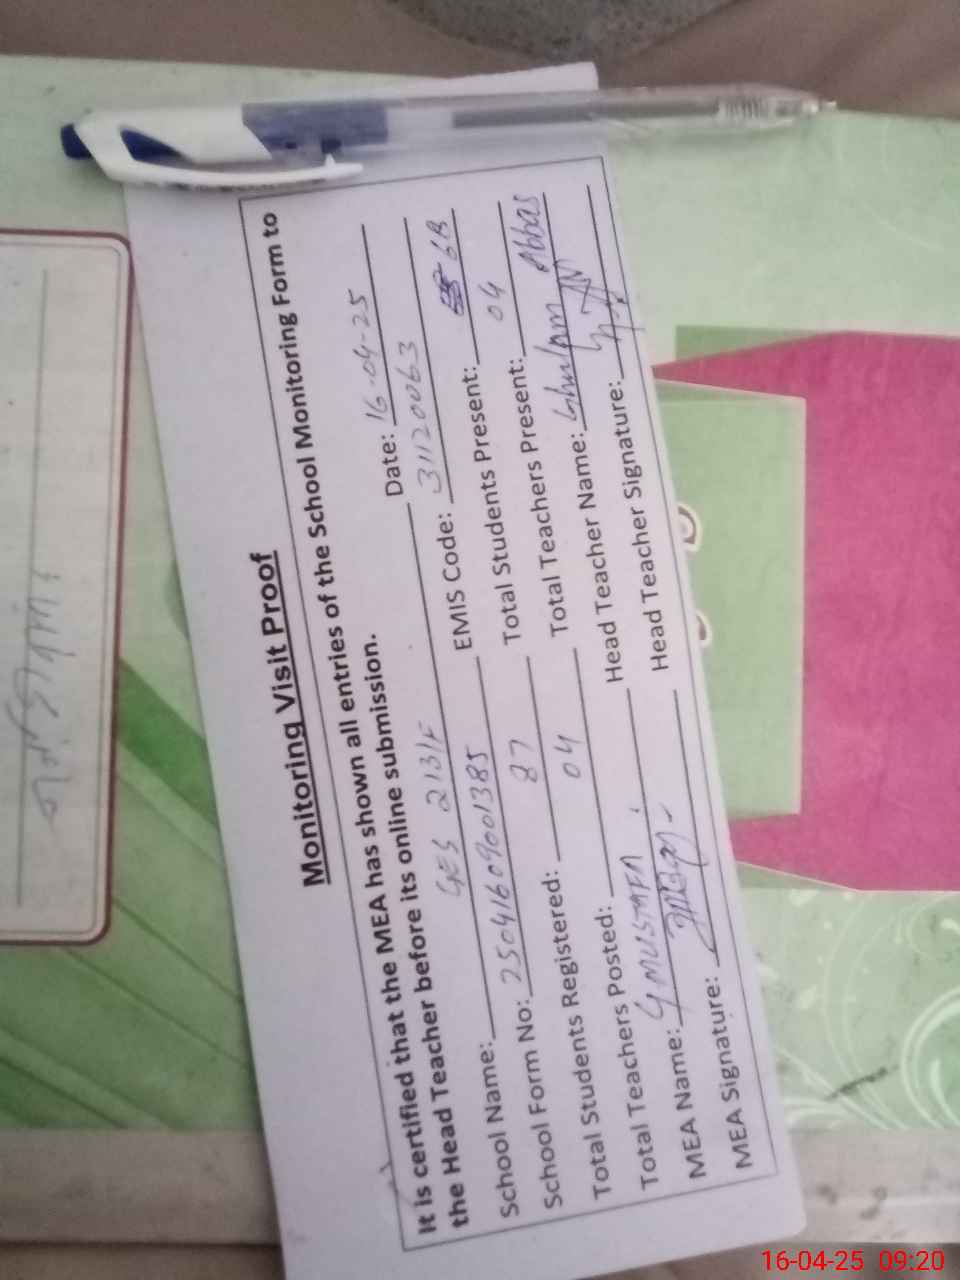 Monitoring Visit Proof
It is certified that the MEA has shown all entries of the School Monitoring Form to
the Head Teacher before its online submission.
School Name: GES 213/F Date: 16-04-25
School Form No: 25041609001385 EMIS Code: 31120063
Total Students Registered: 87 Total Students Present: 68
Total Teachers Posted: 04 Total Teachers Present: 04
MEA Name: G MUSTAFA Head Teacher Name: Ghulam Abbas
MEA Signature: Head Teacher Signature:
16-04-25 09:20